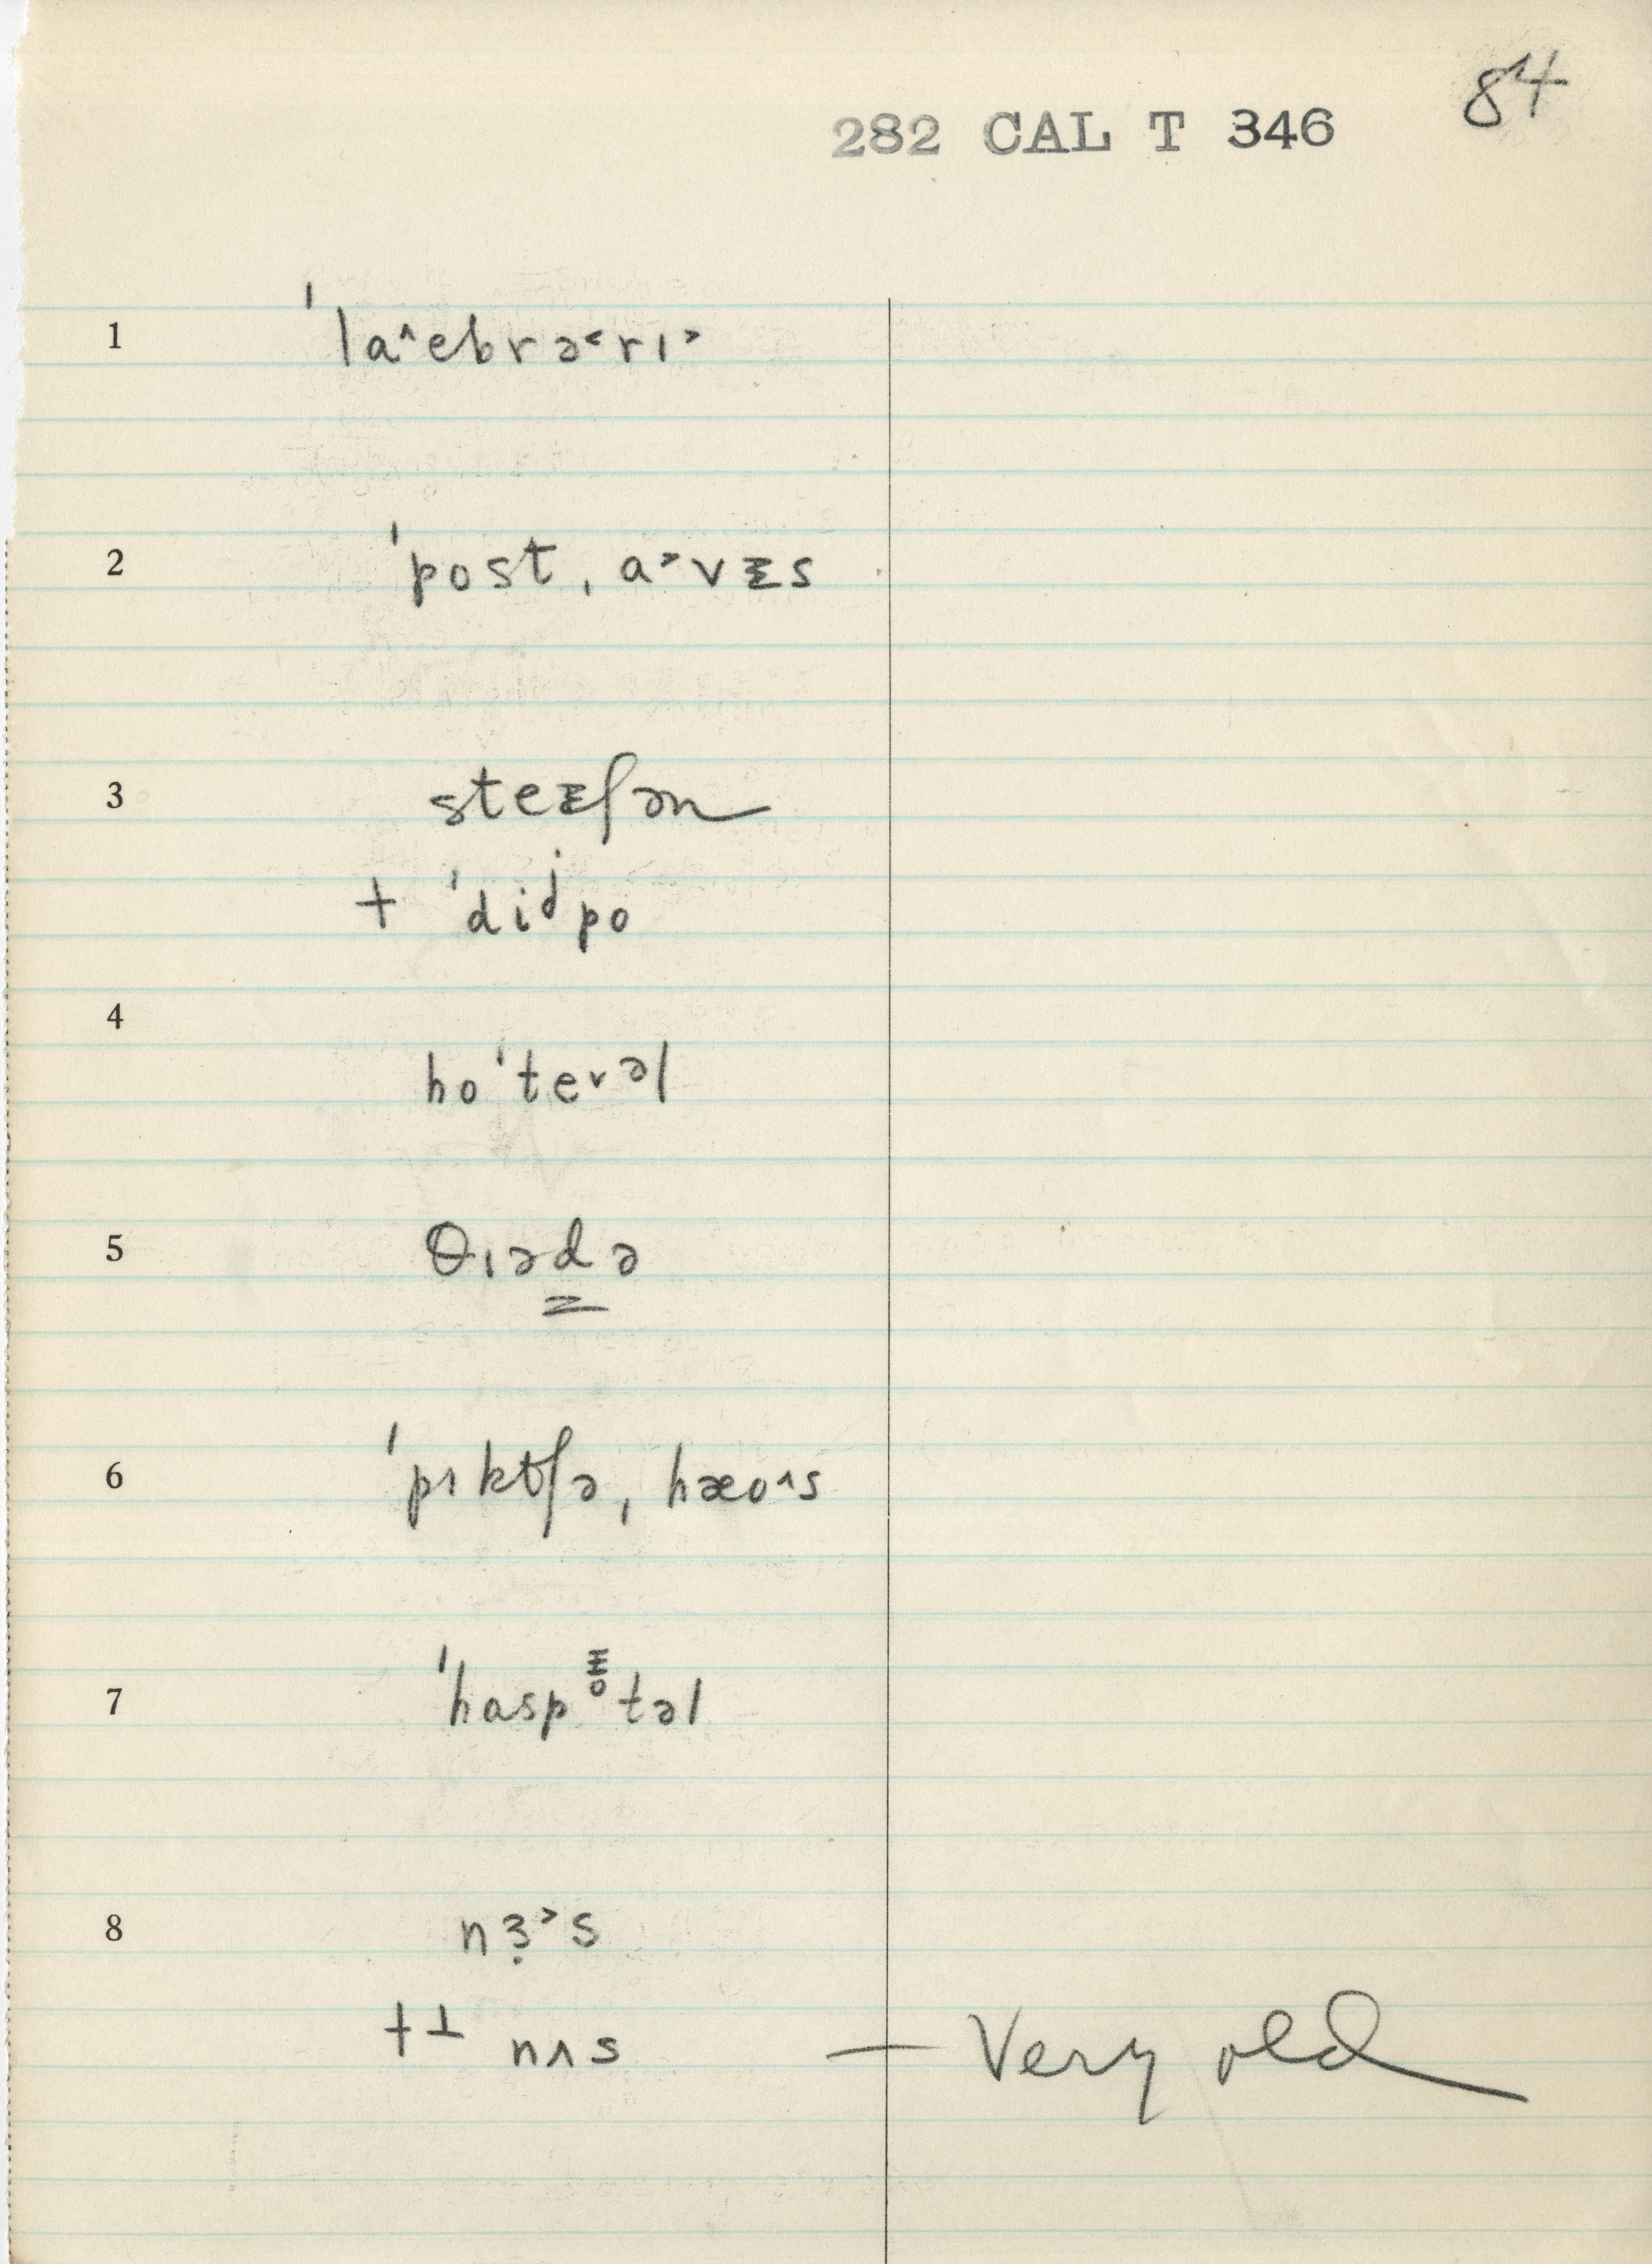 84
282 CAL T 346
1 ˈla^ebrə<rɪ>
2 ˈpost ˌa>vɪs
3 steɪʃən
+ ˈdiʲpo
4
hoˈtevəl
5 θɪədə
6 ˈpɪktʃə ˌhæo^s
7 ˈhaspɪ̥təl
8 nɜ̣>s
+⊥ nʌs — Very old